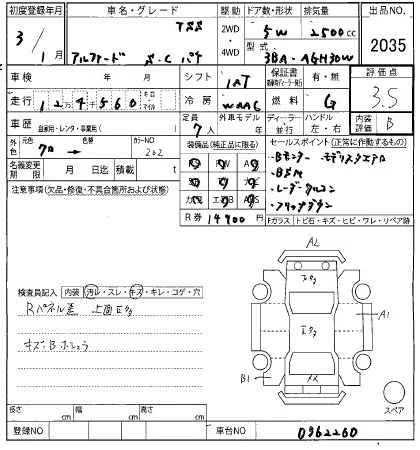 初度登録年月 車名・グレード 駆動 ドア数・形状 排気量 出品NO.
3/1月 アルファード S.C パケ 2WD・4WD 5W 2500cc 2035
型式 3BA-AGH30W
車検 年 月 シフト IAT 保証書 有・無 評価点 3.5
走行 124560 キロ マイル 冷房 WAAC 燃料 G
車歴 自家用・レンタ・事業用( ) 定員 7人 外車モデル年 年 ディーラー・並行 ハンドル 左・右 内装評価 B
外色 元色 クロ → 色替 カラーNO 202 装備品(純正品に限る) セールスポイント(正常に作動するもの)
名義変更期限 月 日迄 積載 t
Bモニター モデリスタエアロ
BSM
レーダークルコン
フリップダウン
注意事項(欠品・修復・不具合箇所および状態)
R券 14900円 Fガラス トビ石・キズ・ヒビ・ワレ・リペア跡
A2
A1
B1
検査員記入 内装 汚レ・スレ・キズ・キレ・コゲ・穴
Rパネル差
キズ・B
スペア
長さ cm 幅 cm 高さ cm
登録NO 車台NO 0362260